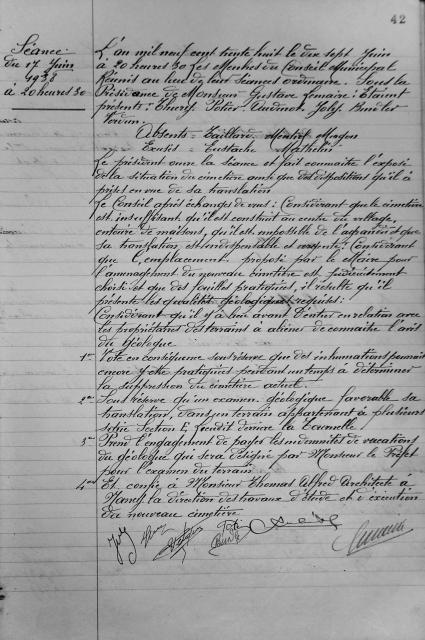 42
Séance
du 17 Juin
1938
à 20 heures 30
L'an mil neuf cent trente huit le dix sept Juin
à 20 heures 30 Les Membres du Conseil Municipal
Réunis au lieu de leur séances ordinaire. Sous la
Présidence de Monsieur Gustave Lemaire : Etaient
présents : Thierry Potier Audinot Joly
Absents : Gaillard Mangon
Excusés : Eustache Mathelin
Le président ouvre la séance et fait connaître l'exposé
de la situation du cimetière ainsi que des dispositions qu'il a
prises en vue de sa translation
Le Conseil après échange de vues : Considérant que le cimetière
est insuffisant qu'il est construit au centre du village,
entouré de maisons, qu'il est impossible de l'agrandir et que
sa translation est indispensable et urgente ; Considérant
que l'emplacement proposé par le Maire pour
l'aménagement du nouveau cimetière est judicieusement
choisi et que des fouilles pratiquées, il résulte qu'il
présente les qualités géologiques requises :
Considérant qu'il y a lieu avant d'entrer en relation avec
les propriétaires des terrains à aliéner de connaître l'avis
du Géologue
1° Vote en conséquence sous réserve que des inhumations pourront
encore y être pratiquées pendant un temps à déterminer
la suppression du cimetière actuel
2° Sous réserve qu'un examen géologique favorable sa
translation, dans un terrain appartenant à plusieurs
Section E lieudit derrière la
3° Prend l'engagement de payer les indemnités de vacations
du géologue qui sera désigné par Monsieur le Préfet
pour l'examen du terrain
4° Et confie à Monsieur Thomas Alfred Architecte à
Nancy la direction des travaux d'étude et d'exécution
du nouveau cimetière